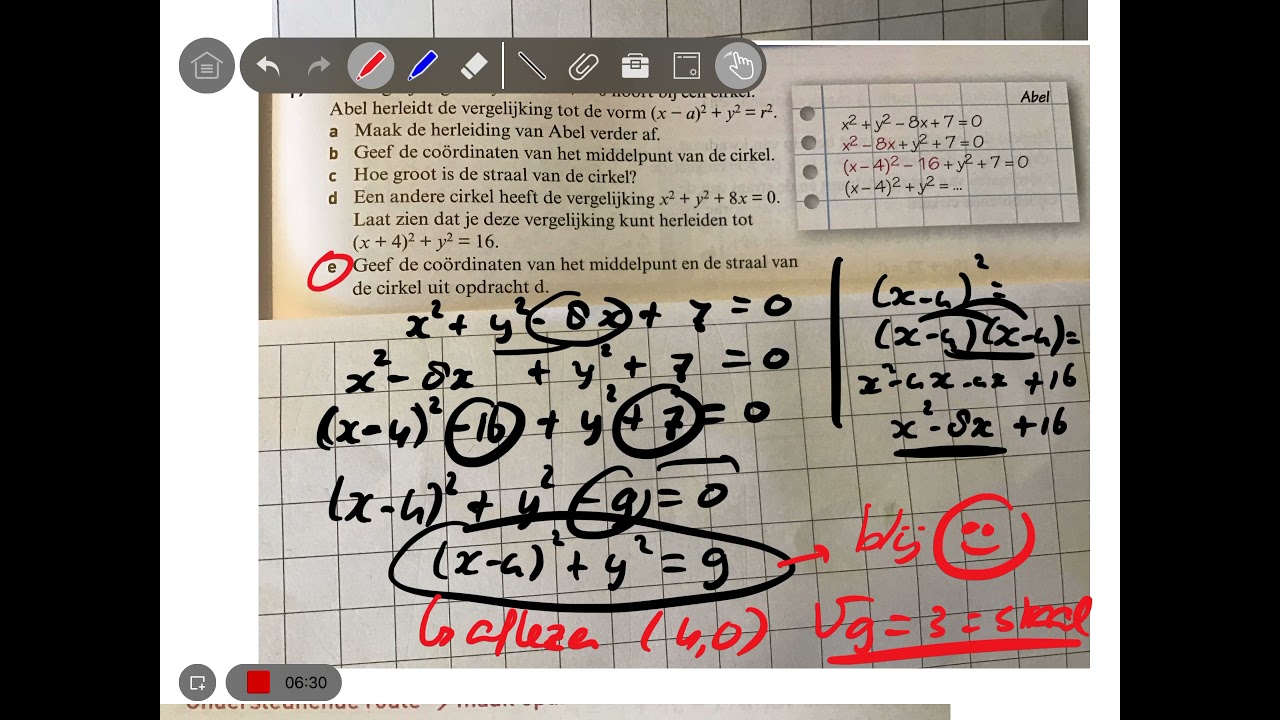 hoort bij een cirkel.
Abel herleidt de vergelijking tot de vorm (x − a)² + y² = r².
a Maak de herleiding van Abel verder af.
b Geef de coördinaten van het middelpunt van de cirkel.
c Hoe groot is de straal van de cirkel?
d Een andere cirkel heeft de vergelijking x² + y² + 8x = 0.
Laat zien dat je deze vergelijking kunt herleiden tot
(x + 4)² + y² = 16.
e Geef de coördinaten van het middelpunt en de straal van
de cirkel uit opdracht d.
Abel
x² + y² − 8x + 7 = 0
x² − 8x + y² + 7 = 0
(x − 4)² − 16 + y² + 7 = 0
(x − 4)² + y² = ...
x² + y² − 8x + 7 = 0
x² − 8x + y² + 7 = 0
(x − 4)² − 16 + y² + 7 = 0
(x − 4)² + y² − 9 = 0
(x − 4)² + y² = 9
(x − 4)² =
(x − 4)(x − 4) =
x² − 4x − 4x + 16
x² − 8x + 16
→ blij
↳ aflezen (4,0)
√9 = 3 = straal
06:30
Ondersteunende route